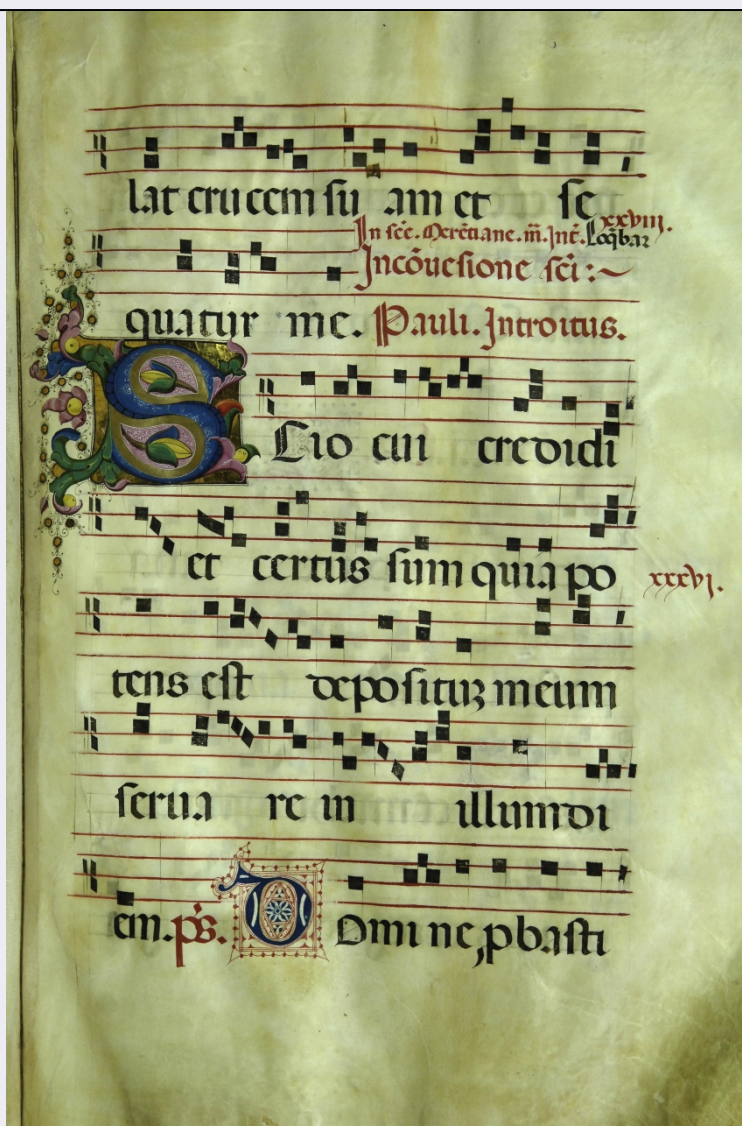 lat crucem su am et se
xxviii.
In scē. Merētiane. m̄. Int̄. Loq̄bar
In cōuersione sc̄i :~
quatur me. Pauli. Introitus.
Scio cui credidi
et certus sum quia po
xxxvi.
tens est deposituꝫ meum
serua re in illum di
em. p̄s. Domine, pbasti